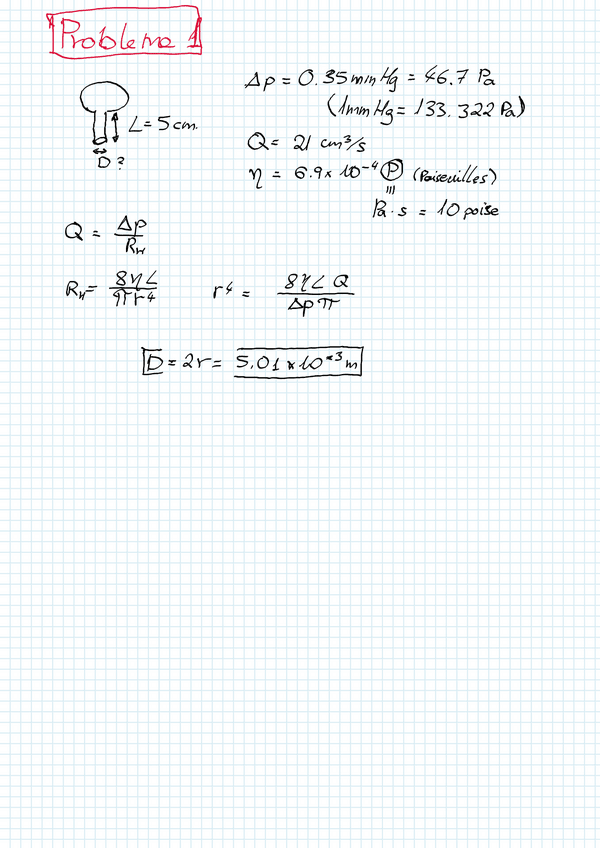 Problema 1
Δp = 0.35 mmHg = 46.7 Pa
(1mmHg = 133.322 Pa)
L = 5 cm.
D ?
Q = 21 cm³/s
η = 6.9 × 10⁻⁴ P (Poiseuilles)
Pa·s = 10 poise
Q = Δp / R_H
R_H = 8ηL / πr⁴
r⁴ = 8ηLQ / Δpπ
D = 2r = 5.01 × 10⁻³ m